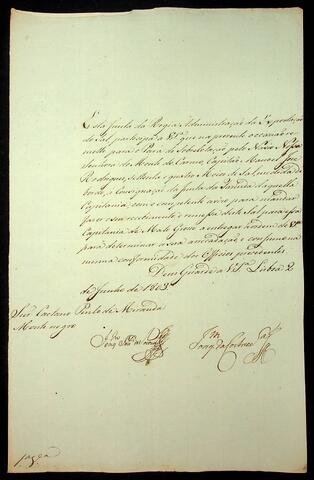 Esta Junta da Regia Administração da Exportação
do Sal, participa a V.S.ª que na presente occazião re-
mette para o Pará de Sobre pelo Navio N. Sen
senhora do Monte do Carmo, Capitão Manoel Joze
Rodrigues, settenta e quatro Moios de Sal medida de
bordo, a Consignação da Junta da Fazenda daquella
Capitania, com o competente avizo para mandar
fazer o seu recebimento e remessa deste Sal para essa
Capitania de Mato Groso a entregar à ordem de V.S.ª
para determinar a sua arrecadação e consumo na
mesma conformidade dos Officios precedentes.
Deos Guarde a V.S.ª Lisboa 2
de Junho de 1803
Snr. Caetano Pinto de Miranda
Montenegro